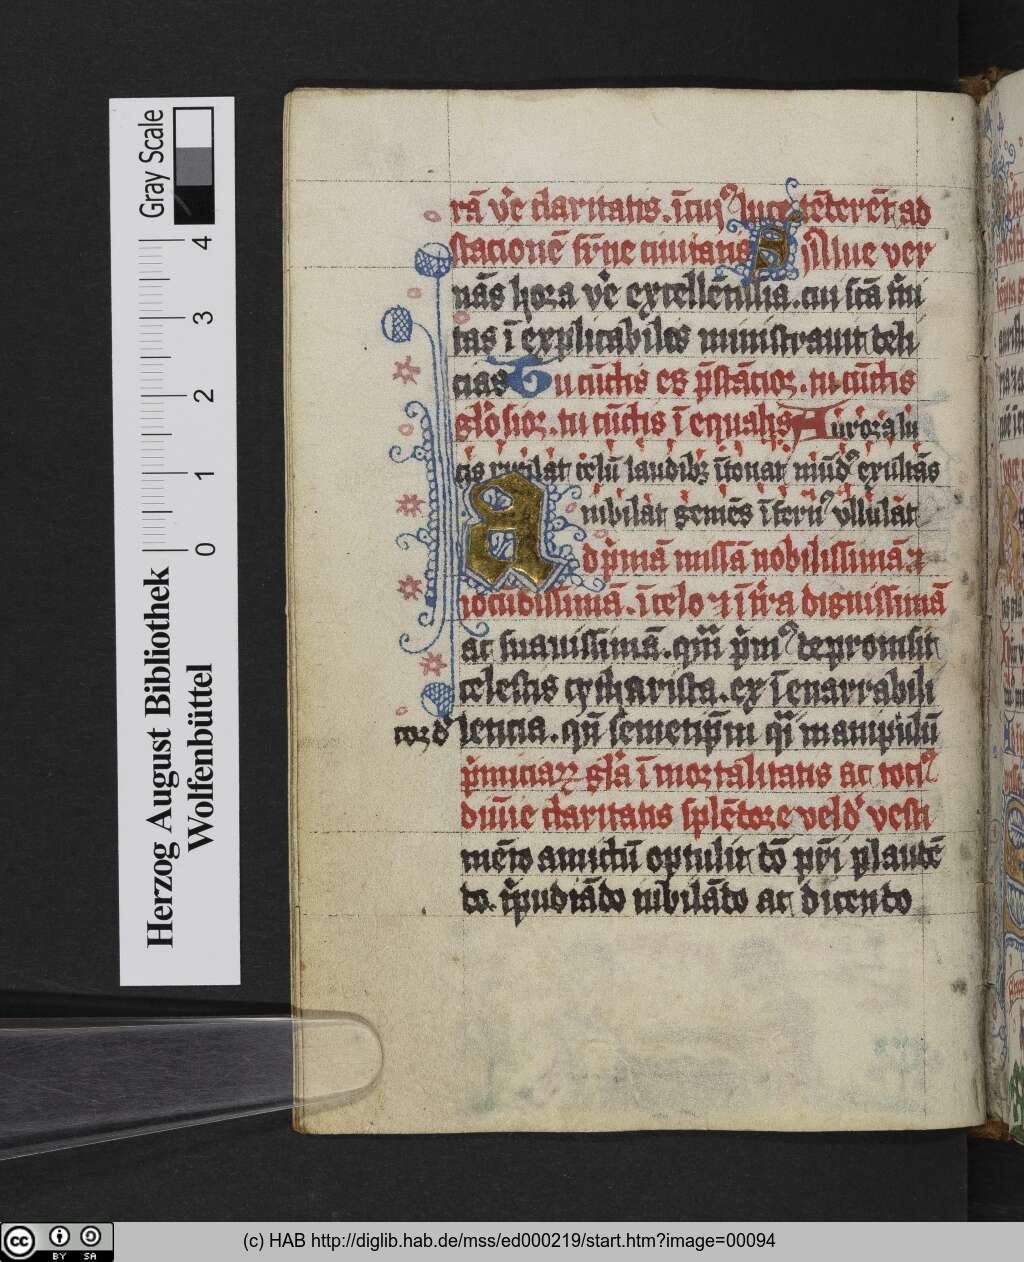 Gray Scale
4
3
2
1
0
Herzog August Bibliothek
Wolfenbüttel
rā v̄e claritatis. ī cuiꝰ luce tēderēt ad
stacionē fr̄ne ciuitatis
nās hora v̄e excellētissīa. cui scā
tas īexplicabiles ministrauit deli
cias Tu cūctis es p̄stācior. tu cūctis
gl'osior. tu cūctis īequalis Aurora lu
cis rutilat celū laudibꝫ ītonat mūdꝰ exultās
iubilāt gemēs īfernꝰ vllulāt
Ad p̄mā missā nobilissimā ⁊
iocūdissimā. ī celo ⁊ ī t'ra dignissimā
ac suauissimā. p̄mꝰ depromsit
celestis cytharista. ex īenarrabili
cord' leticia. qn̄ semetip̄m manipulū
p̄miciaꝝ gl'a īmortalitatis ac tociꝰ
diuīe claritatis splēdore vel d' vesti
mēto amictū optulit dō pr̄i plaudē
do. t'pudiādo iubilādo ac dicendo
(c) HAB http://diglib.hab.de/mss/ed000219/start.htm?image=00094
cc BY SA